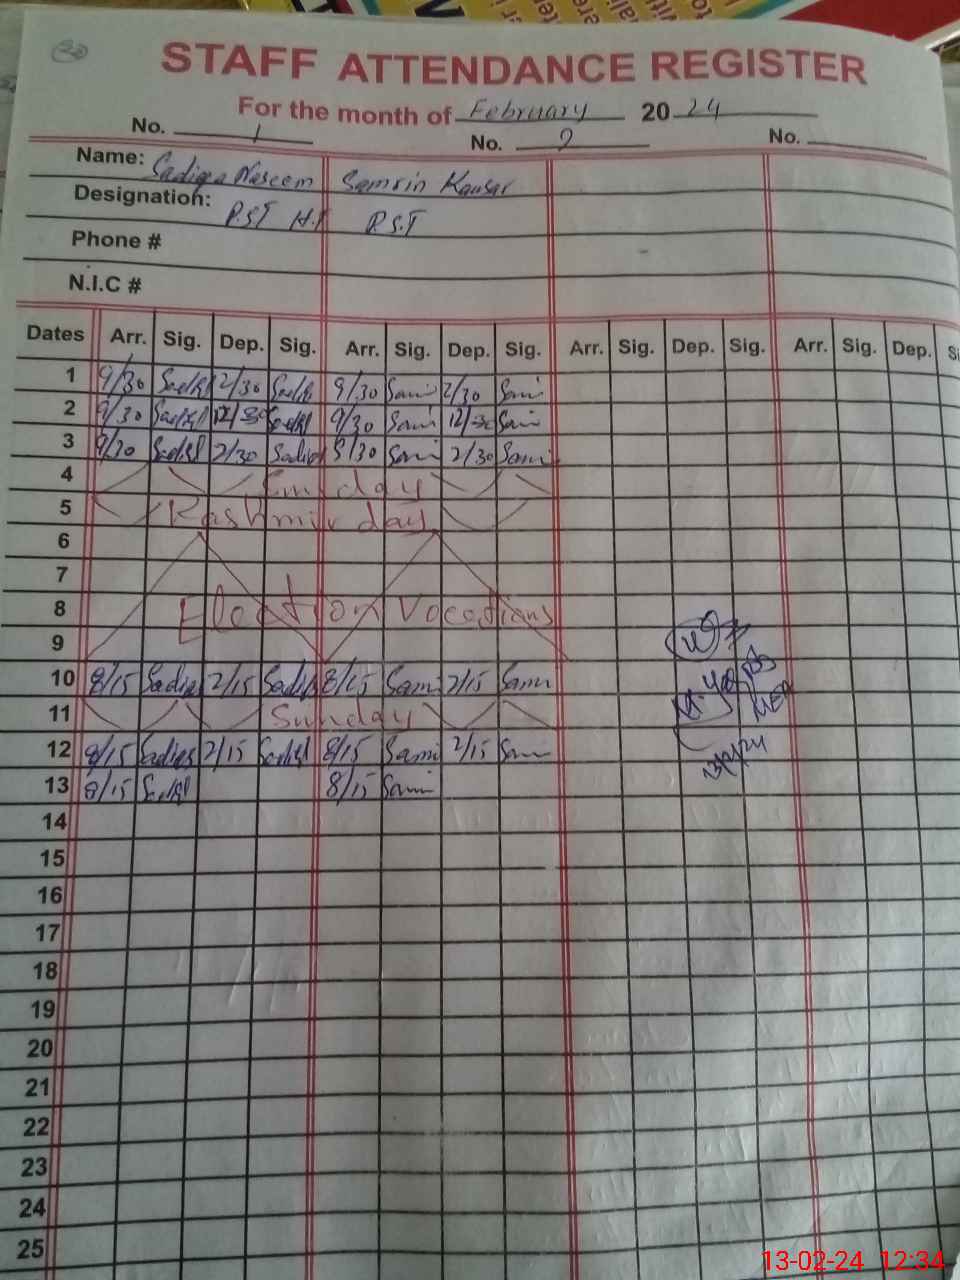 20
STAFF ATTENDANCE REGISTER
For the month of February 2024
No. 1 No. 2 No.
Name: Sadiqa Naseem Samrin Kausar
Designation: P.S.T H.T P.S.T
Phone #
N.I.C #
Dates Arr. Sig. Dep. Sig. Arr. Sig. Dep. Sig. Arr. Sig. Dep. Sig. Arr. Sig. Dep. Si
1 9/30 2/30 9/30 Sami 2/30 Sami
2 9/30 12/30 9/30 Sami 12/30 Sami
3 9/30 2/30 Sadiq 9/30 Sami 2/30 Sami
4 Sunday
5 Kashmir day
6
7
8 Election Vocations
9
10 8/15 Sadiq 2/15 Sadiq 8/15 Sami 2/15 Sami
11 Sunday
12 8/15 Sadiqa 2/15 8/15 Sami 2/15 Sami
13 8/15 8/15 Sami
13/2/24
14
15
16
17
18
19
20
21
22
23
24
25
13-02-24 12:34